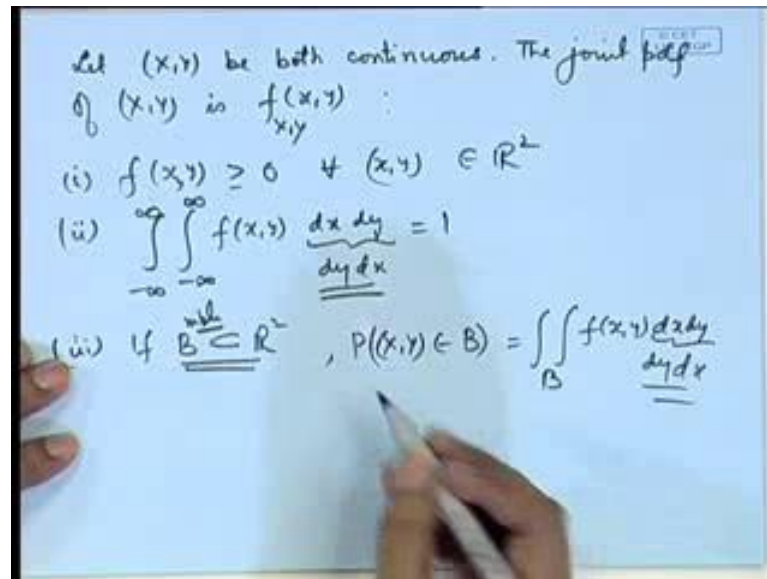 Let (X,Y) be both continuous. The joint pdf
of (X,Y) is f_{X,Y}(x,y) :
(i) f(x,y) ≥ 0 ∀ (x,y) ∈ ℝ²
(ii) ∫_{-∞}^{∞} ∫_{-∞}^{∞} f(x,y) dx dy = 1
dy dx
(iii) If B ⊂ ℝ², P((X,Y) ∈ B) = ∫∫_B f(x,y) dx dy
dy dx